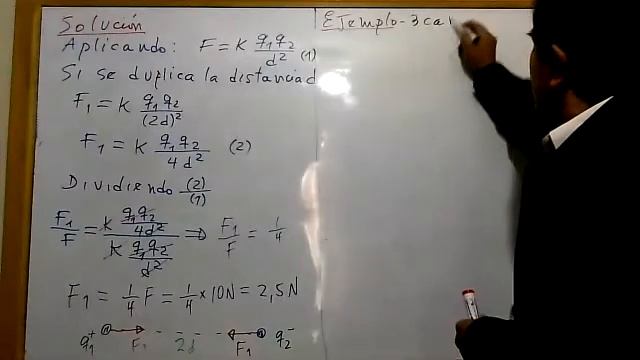 Solución
Aplicando: F = K q1 q2 / d² (1)
Si se duplica la distancia d
F1 = K q1 q2 / (2d)²
F1 = K q1 q2 / 4d² (2)
Dividiendo (2)/(1)
F1/F = (K q1 q2 / 4d²) / (K q1 q2 / d²) ⇒ F1/F = 1/4
F1 = 1/4 F = 1/4 × 10N = 2,5 N
q1+ F1 2d F1 q2-
Ejemplo - 3 car